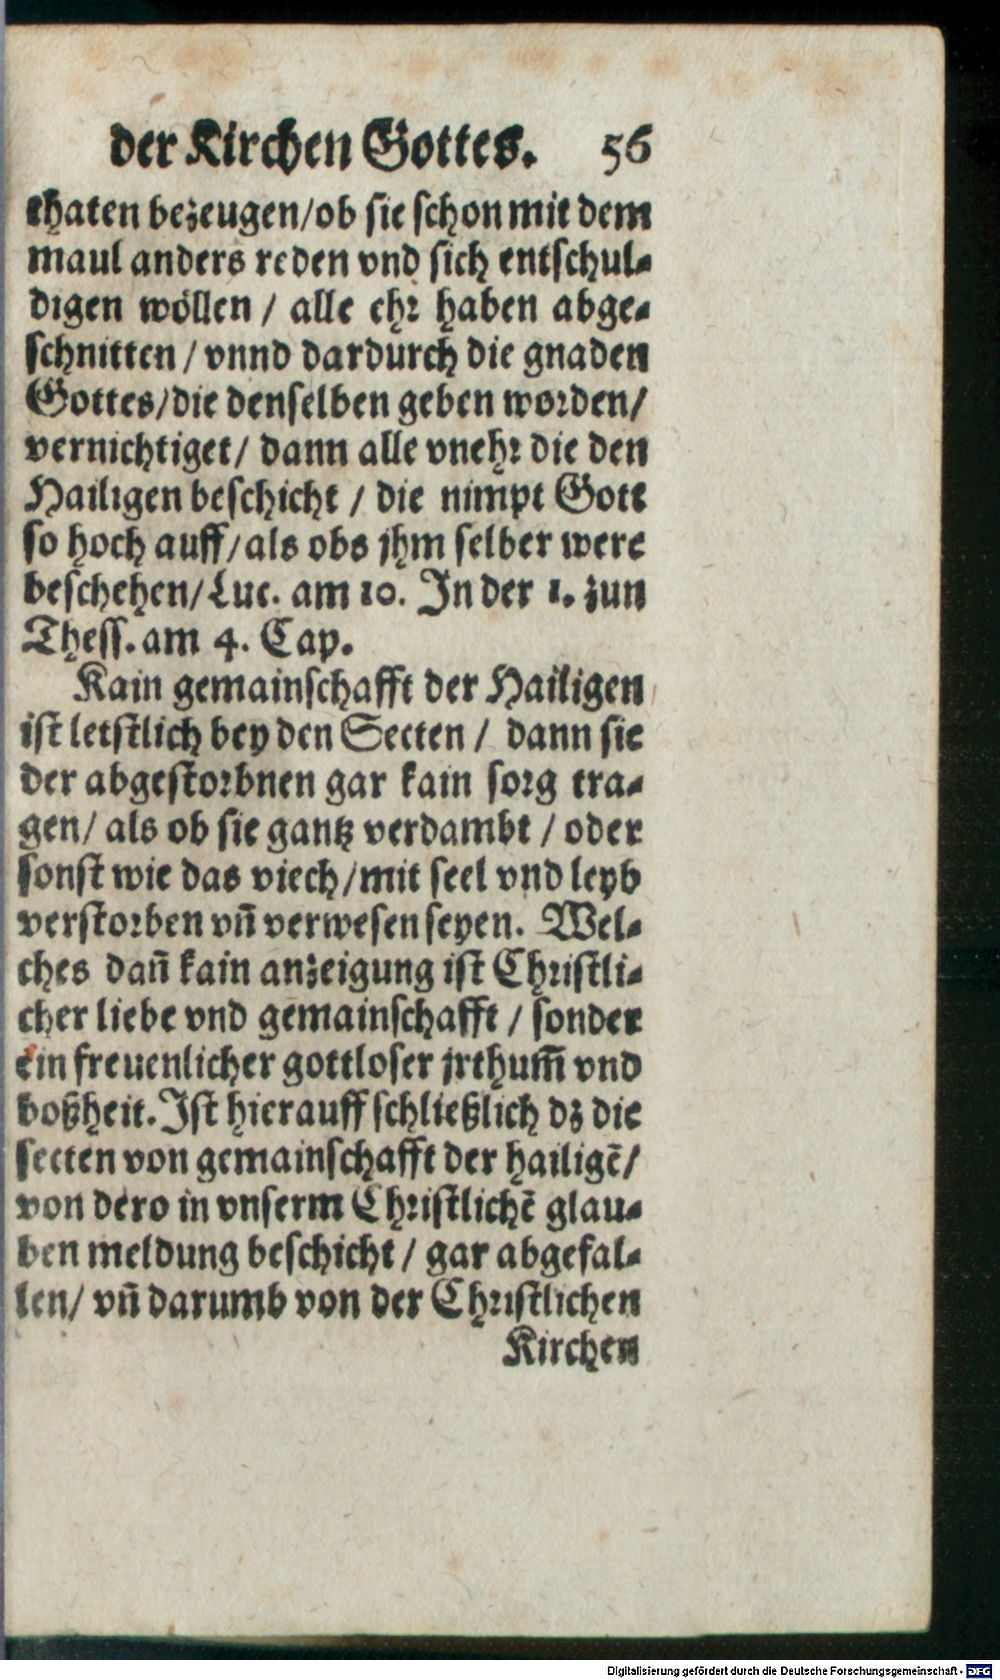 der Kirchen Gottes. 56
thaten bezeugen/ob sie schon mit dem
maul anders reden vnd sich entschul-
digen wöllen / alle ehr haben abge-
schnitten / vnnd dardurch die gnaden
Gottes/die denselben geben worden/
vernichtiget/ dann alle vnehr die den
Hailigen beschicht / die nimpt Gott
so hoch auff/als obs jhm selber were
beschehen/Luc. am 10. In der 1. zun
Thess. am 4. Cap.
Kain gemainschafft der Hailigen
ist letstlich bey den Secten / dann sie
der abgestorbnen gar kain sorg tra-
gen/ als ob sie gantz verdambt / oder
sonst wie das viech/mit seel vnd leyb
verstorben vñ verwesen seyen. Wel-
ches dañ kain anzeigung ist Christli-
cher liebe vnd gemainschafft / sonder
ein freuenlicher gottloser jrthum̃ vnd
boßheit. Ist hierauff schließlich dz die
secten von gemainschafft der hailigẽ/
von dero in vnserm Christlichẽ glau-
ben meldung beschicht / gar abgefal-
len/ vñ darumb von der Christlichen
Kirchen
Digitalisierung gefördert durch die Deutsche Forschungsgemeinschaft - DFG